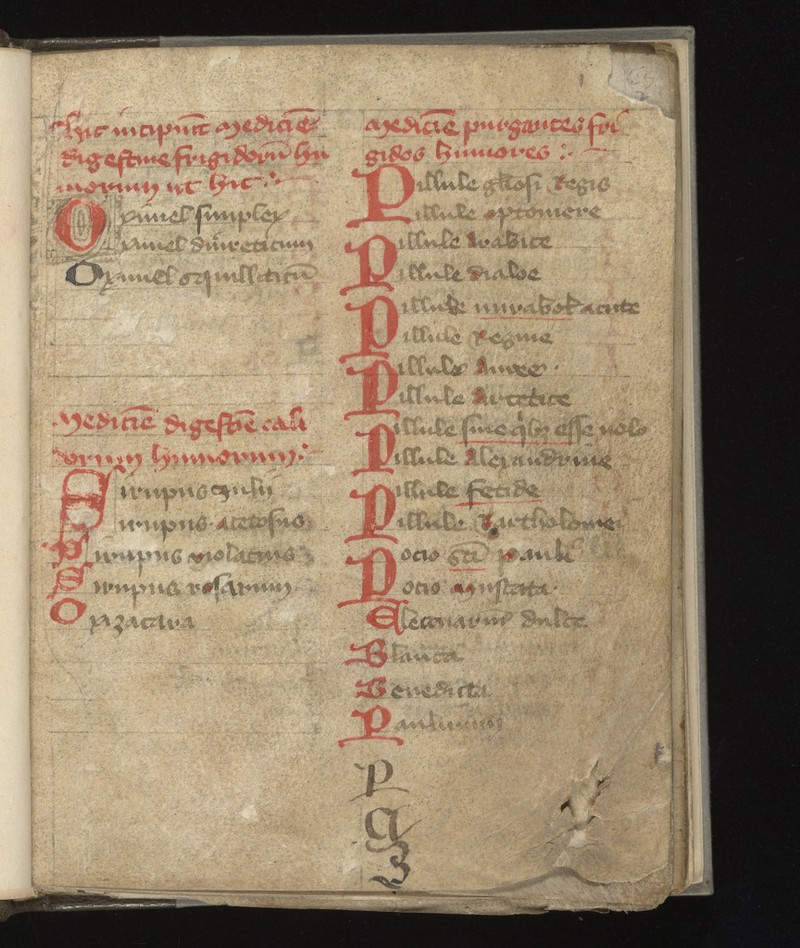 Hic incipiũt medicĩe
digestiue frigidorũ hu
morum ut hic :
Oximel simplex
Oximel diureticum
Oximel squilliticũ
Medicĩe digestĩe cali
dorum humorum :
Sirupus
Sirupus acetosus
Sirupus violatius
Sirupus rosarum
Oxizacara
Medicĩe purgantes fri
gidos humores :
Pillule Regis
Pillule optomere
Pillule Arabice
Pillule dialoe
Pillule acute
Pillule Regine
Pillule Auree
Pillule Artetice
Pillule sine esse nolo
Pillule Alexandrine
Pillule fetide
Pillule Bartholomei
Pocio sc̃i Pauli
Pocio Mustata
Electuariũ dulce
Blanca
Benedicta
Paulinum
P
a
3